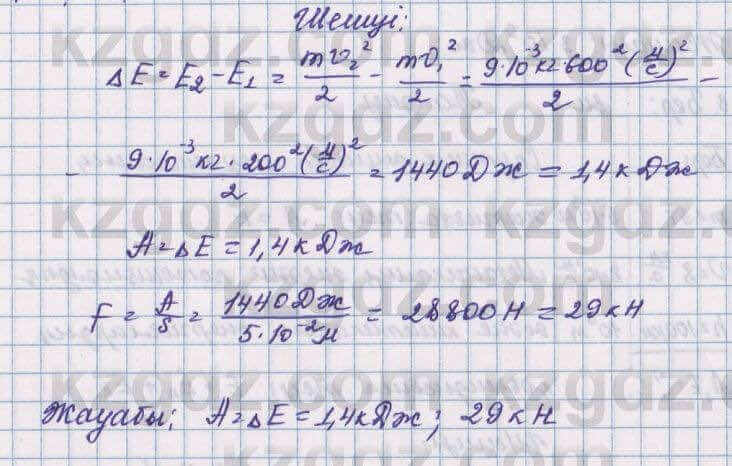 Шешуі:
ΔE = E₂ - E₁ = mv₂²/2 - mv₁²/2 = 9·10⁻³кг·600²(м/с)²/2 -
- 9·10⁻³кг·200²(м/с)²/2 = 1440Дж = 1,4кДж
A = ΔE = 1,4кДж
F = A/s = 1440Дж/5·10⁻²м = 28800Н = 29кН
Жауабы: A = ΔE = 1,4кДж; 29кН